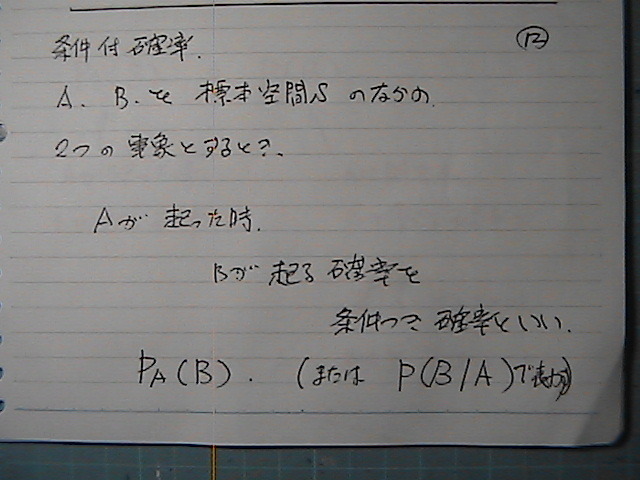 条件付確率. ⑫
A. B. を 標本空間S のなかの
2つの 事象とすると?.
Aが 起った時.
Bが 起る 確率を
条件つき 確率といい.
PA(B). (または P(B/A)で表わす)